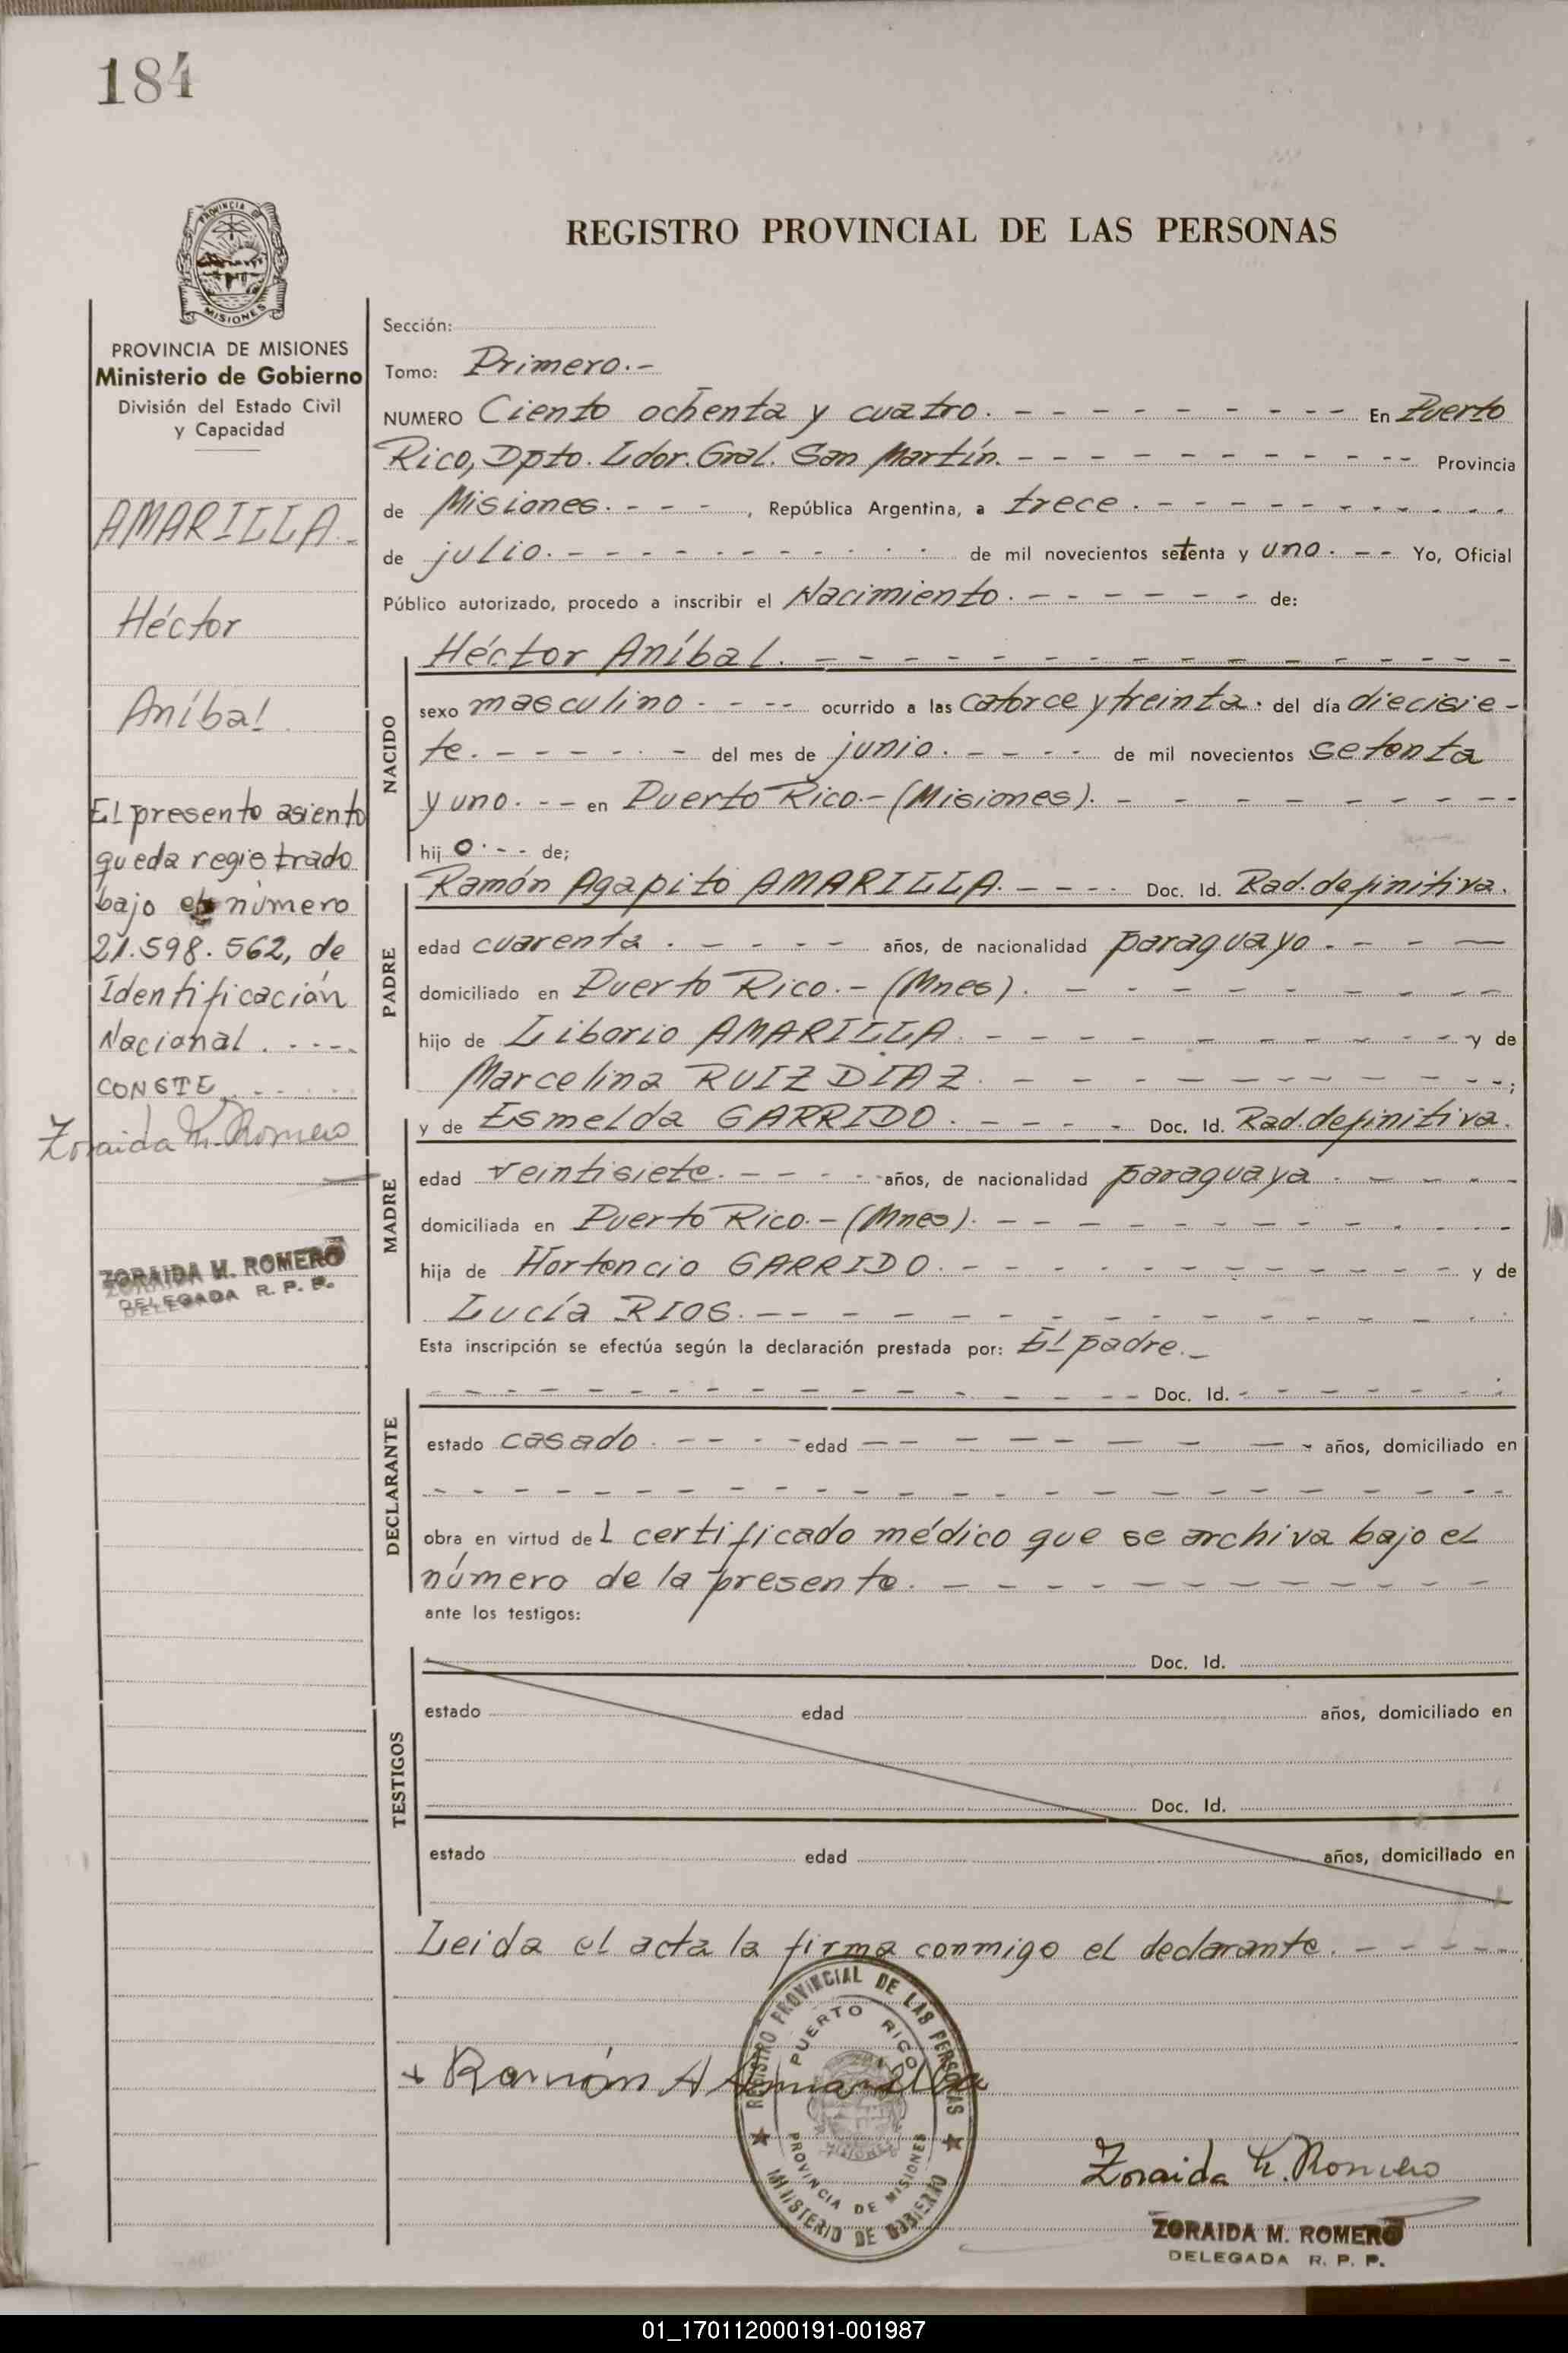 184
REGISTRO PROVINCIAL DE LAS PERSONAS
PROVINCIA DE MISIONES
Ministerio de Gobierno
División del Estado Civil
y Capacidad
AMARILLA.-
Héctor
Aníbal
El presente asiento
queda registrado
bajo el número
21.598.562, de
Identificación
Nacional.----
CONSTE.
Zoraida M. Romero
ZORAIDA M. ROMERO
DELEGADA R. P. P.
Sección:
Tomo: Primero.-
NUMERO Ciento ochenta y cuatro. - - - - - - - - - En Puerto
Rico, Dpto. Ldor. Gral. San Martín. - - - - - - - - - - Provincia
de Misiones. - - - , República Argentina, a trece. - - - - - - - - -
de julio. - - - - - - - - - de mil novecientos setenta y uno. - - Yo, Oficial
Público autorizado, procedo a inscribir el Nacimiento. - - - - - - de:
NACIDO
Héctor Aníbal. - - - - - - - - - - - - - - -
sexo masculino - - - - ocurrido a las catorce y treinta. del día diecisie-
te. - - - - - - del mes de junio. - - - - de mil novecientos setenta
y uno. - - en Puerto Rico.- (Misiones). - - - - - - - - -
hijo. - - de;
PADRE
Ramón Agapito AMARILLA. - - - - Doc. Id. Rad. definitiva.
edad cuarenta. - - - - - años, de nacionalidad paraguayo. - - -
domiciliado en Puerto Rico.- (Mnes). - - - - - - - - -
hijo de Liborio AMARILLA. - - - - - - - - - - y de
Marcelina RUIZ DIAZ. - - - - - - - - - - - ;
MADRE
y de Esmelda GARRIDO. - - - - Doc. Id. Rad. definitiva.
edad veintisiete. - - - - años, de nacionalidad paraguaya. - - - -
domiciliada en Puerto Rico.- (Mnes). - - - - - - - - - -
hija de Hortencio GARRIDO. - - - - - - - - - - - y de
Lucía RIOS. - - - - - - - - - - - - - -
Esta inscripción se efectúa según la declaración prestada por: El padre.-
DECLARANTE
- - - - - - - - - - - - - - - - - Doc. Id. - - - - - - -
estado casado. - - - - edad - - - - - - - - - años, domiciliado en
- - - - - - - - - - - - - - - - - - - - - - - -
obra en virtud del certificado médico que se archiva bajo el
número de la presente. - - - - - - - - - - - -
ante los testigos:
TESTIGOS
Doc. Id.
estado edad años, domiciliado en
Doc. Id.
estado edad años, domiciliado en
Leida el acta la firma conmigo el declarante. - - - - -
REGISTRO PROVINCIAL DE LAS PERSONAS
PUERTO RICO
PROVINCIA DE MISIONES
MINISTERIO DE GOBIERNO
+ Ramón A Amarilla
Zoraida M. Romero
ZORAIDA M. ROMERO
DELEGADA R. P. P.
01_170112000191-001987